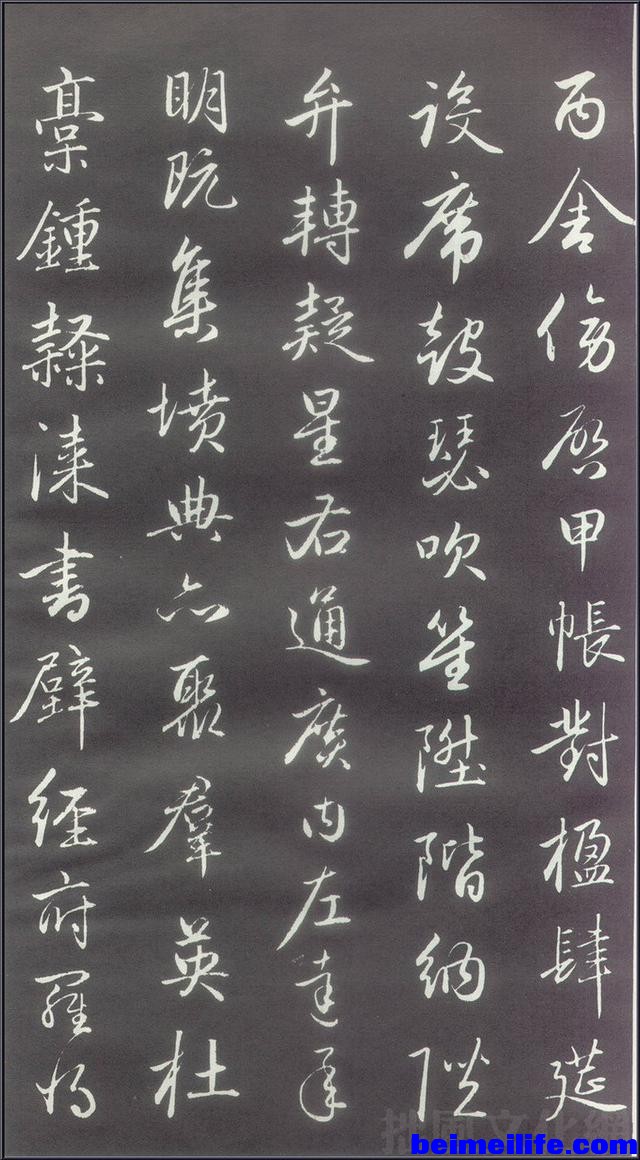 丙舍傍啓甲帳對楹肆筵
設席鼓瑟吹笙陞階納陛
弁轉疑星右通廣内左達承
明既集墳典亦聚羣英杜
稾鍾隸漆書壁經府羅將
拙風文化網
beimeilife.com